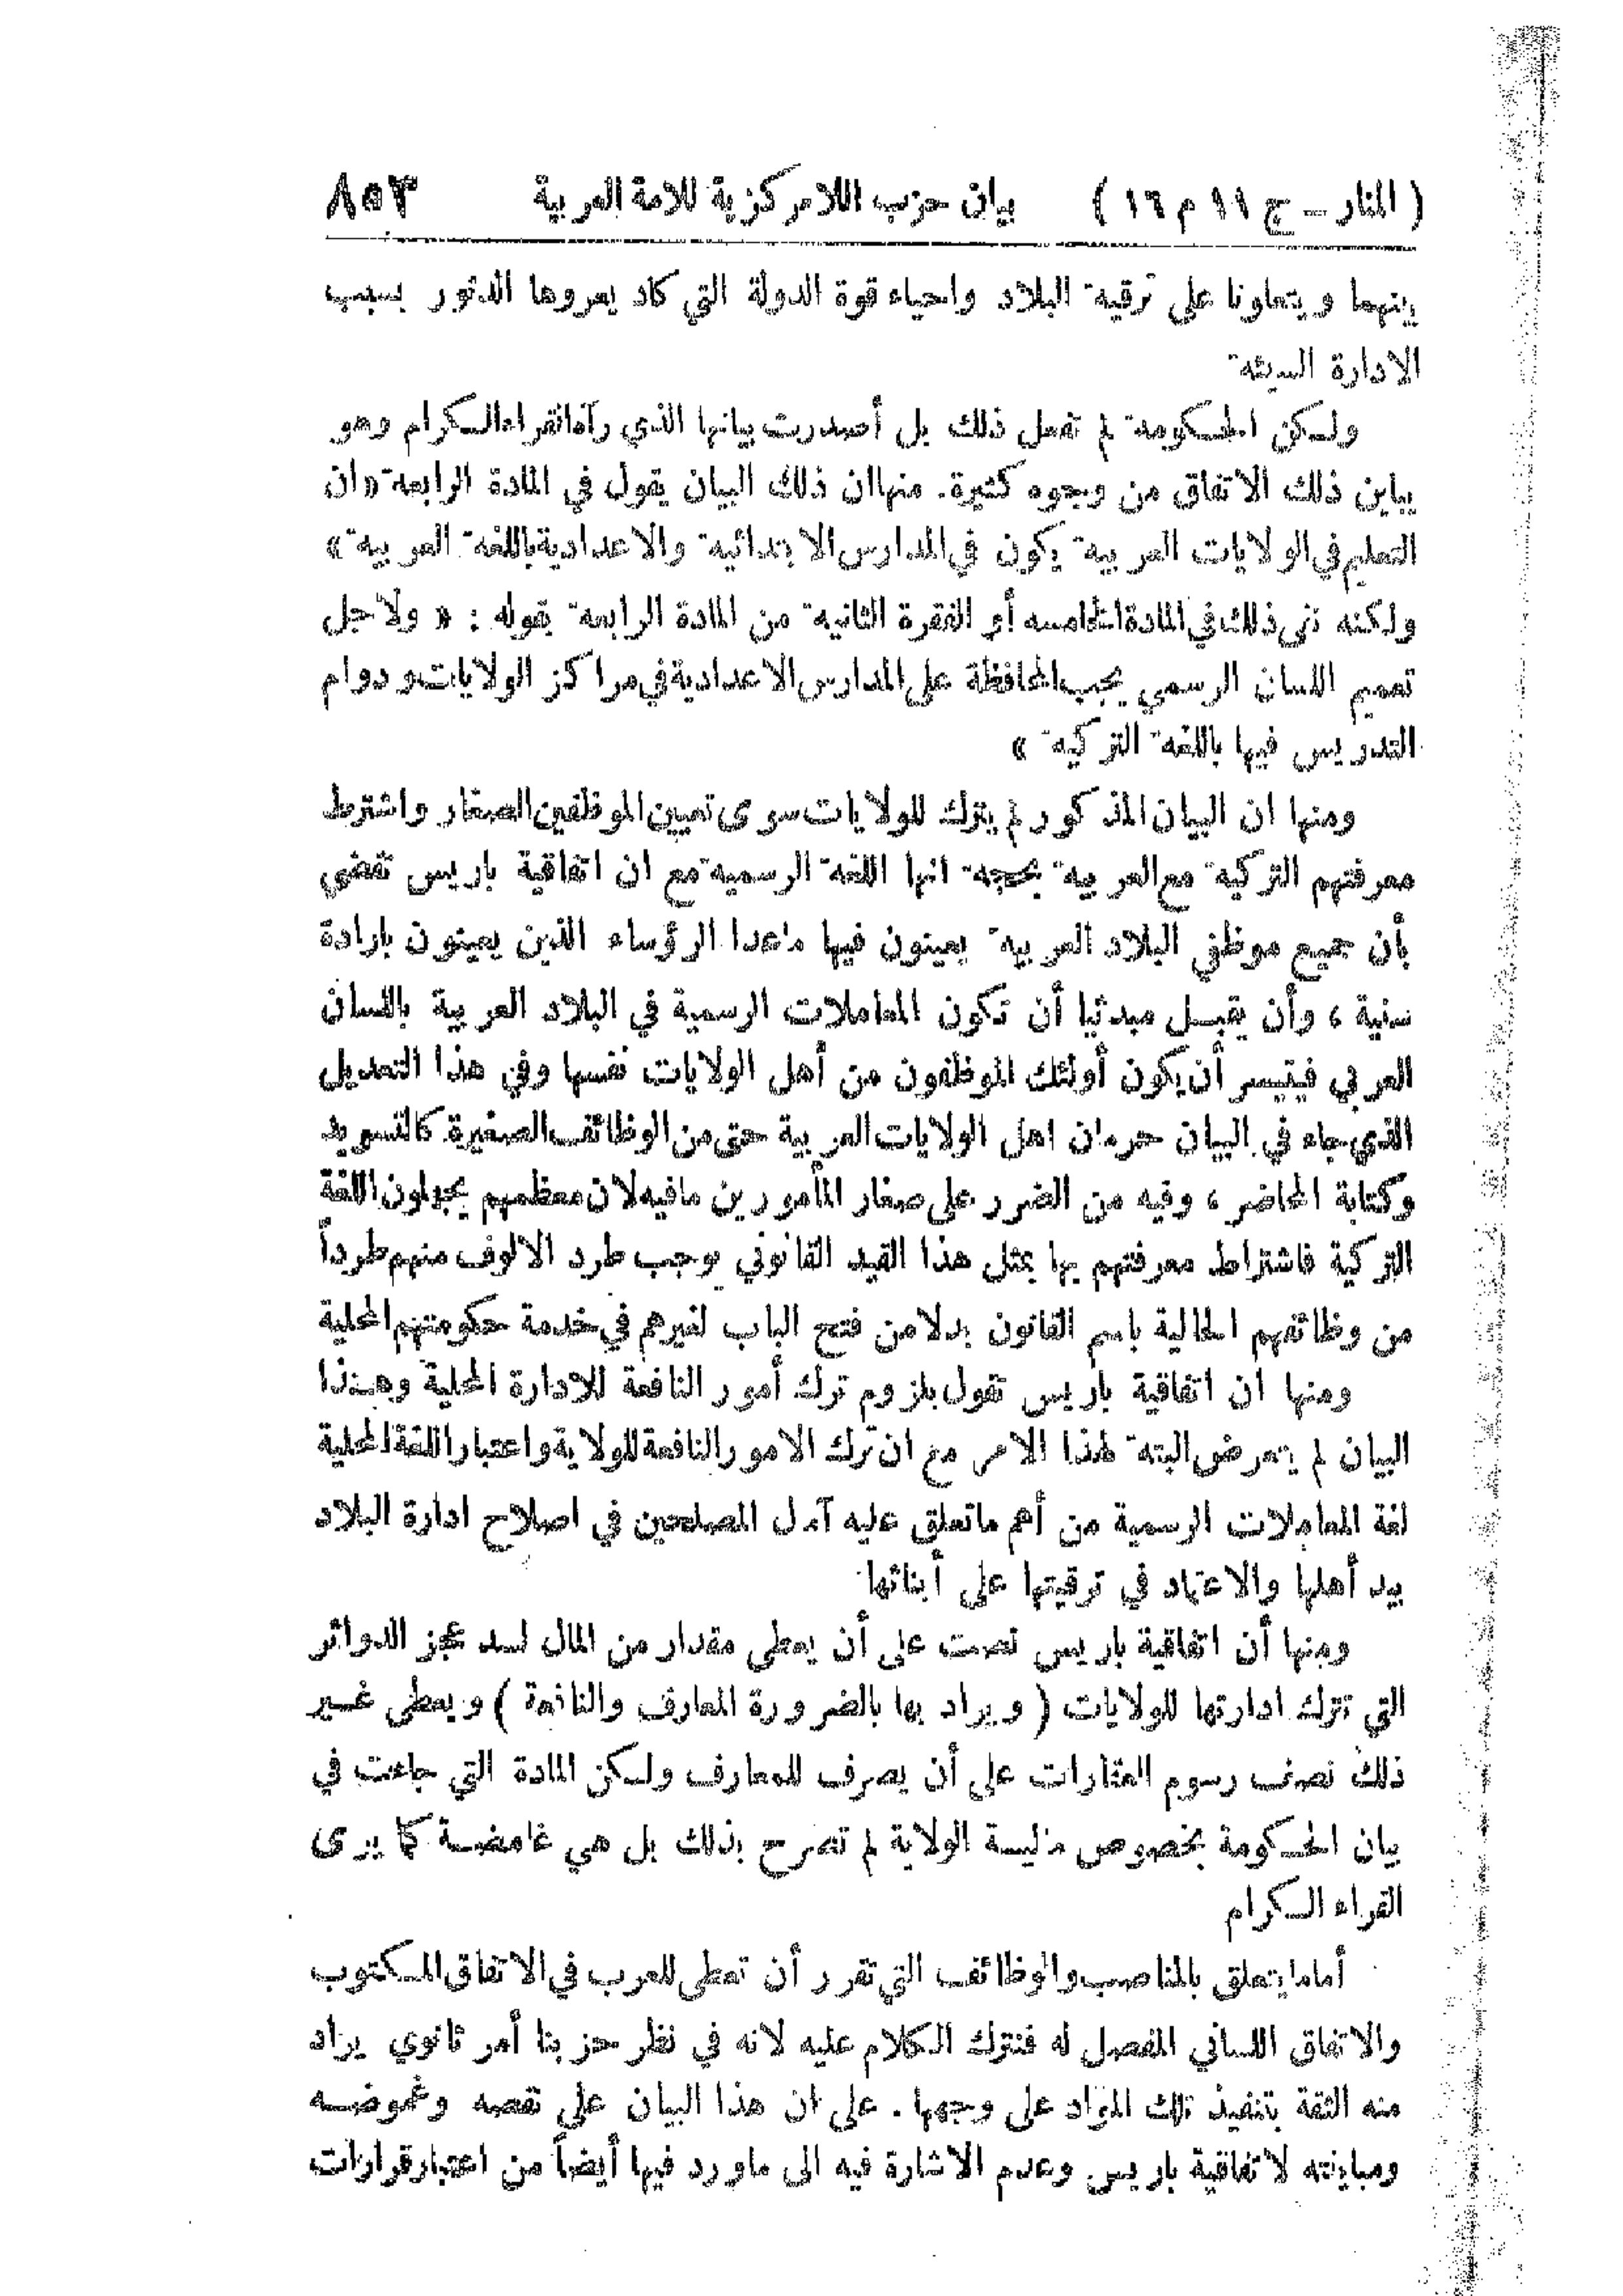 ( المنار ــ ج ١١ م ١٦ ) بيان حزب اللامركزية للامة العربية ٨٥٣
بينهما ويتعاونا على ترقية البلاد واحياء قوة الدولة التي كاد يعروها الدثور بسبب
الادارة السيئة
ولكن الحكومة لم تفعل ذلك بل أصدرت بيانها الذي رآه القراء الكرام وهو
يباين ذلك الاتفاق من وجوه كثيرة . منها ان ذلك البيان يقول في المادة الرابعة «ان
التعليم في الولايات العربية يكون في المدارس الابتدائية والاعدادية باللغة العربية»
ولكنه نفى ذلك في المادة الخامسه أو الفقرة الثانية من المادة الرابعة بقوله : « ولاجل
تعميم اللسان الرسمي يجب المحافظة على المدارس الاعدادية في مراكز الولايات ودوام
التدريس فيها باللغة التركية »
ومنها ان البيان المذكور لم يترك للولايات سوى تعيين الموظفين الصغار واشترط
معرفتهم التركية مع العربية بحجة انها اللغة الرسمية مع ان اتفاقية باريس تقضي
بأن جميع موظفي البلاد العربية يعينون فيها ماعدا الرؤساء الذين يعينون بارادة
سنية ، وأن يقبل مبدئيا أن تكون المعاملات الرسمية في البلاد العربية باللسان
العربي فيتيسر أن يكون أولئك الموظفون من أهل الولايات نفسها وفي هذا التعديل
الذي جاء في البيان حرمان اهل الولايات العربية حتى من الوظائف الصغيرة كالتسويد
وكتابة المحاضر ، وفيه من الضرر على صغار المأمورين مافيه لان معظمهم يجهلون اللغة
التركية فاشتراط معرفتهم بها بمثل هذا القيد القانوني يوجب طرد الالوف منهم طرداً
من وظائفهم الحالية باسم القانون بدلا من فتح الباب لغيرهم في خدمة حكومتهم المحلية
ومنها ان اتفاقية باريس تقول بلزوم ترك أمور النافعة للادارة المحلية وهذا
البيان لم يتعرض البتة لهذا الامر مع ان ترك الامور النافعة للولاية واعتبار اللغة المحلية
لغة المعاملات الرسمية من أهم ماتعلق عليه آمال المصلحين في اصلاح ادارة البلاد
بيد أهلها والاعتماد في ترقيتها على أبنائها
ومنها أن اتفاقية باريس نصت على أن يعطى مقدار من المال لسد عجز الدوائر
التي تترك ادارتها للولايات ( ويراد بها بالضرورة المعارف والنافعة ) ويعطى غير
ذلك نصف رسوم العقارات على أن يصرف للمعارف ولكن المادة التي جاءت في
بيان الحكومة بخصوص مالية الولاية لم تصرح بذلك بل هي غامضة كما يرى
القراء الكرام
أما ما يتعلق بالمناصب والوظائف التي تقرر أن تعطى للعرب في الاتفاق المكتوب
والاتفاق اللساني المفصل له فنترك الكلام عليه لانه في نظر حزبنا أمر ثانوي يراد
منه الثقة بتنفيذ تلك المواد على وجهها . على ان هذا البيان على نقصه وغموضه
ومباينته لاتفاقية باريس وعدم الاشارة فيه الى ماورد فيها أيضاً من اعتبار قرارات